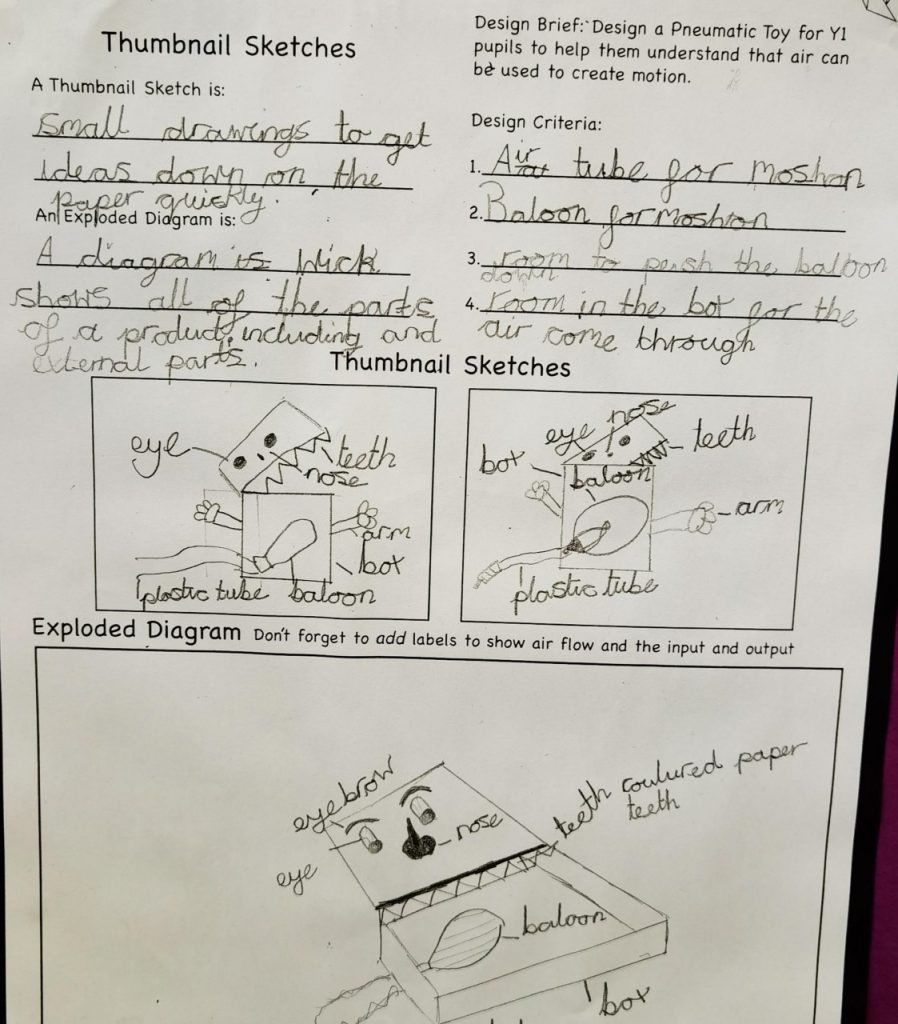 Thumbnail Sketches
A Thumbnail Sketch is:
small drawings to get
ideas down on the
paper quickly.
An Exploded Diagram is:
A diagram is wick
shows all of the parts
of a product, including and
external parts.
Design Brief: Design a Pneumatic Toy for Y1
pupils to help them understand that air can
be used to create motion.
Design Criteria:
1. Air tube for moshan
2. Baloon for moshion
3. room to push the baloon
down
4. room in the box for the
air come through
Thumbnail Sketches
eye
teeth
nose
arm
box
plastic tube baloon
eye nose
teeth
box
baloon
arm
plastic tube
Exploded Diagram Don't forget to add labels to show air flow and the input and output
eyebrow
eye
nose
teeth coulured paper
teeth
baloon
box